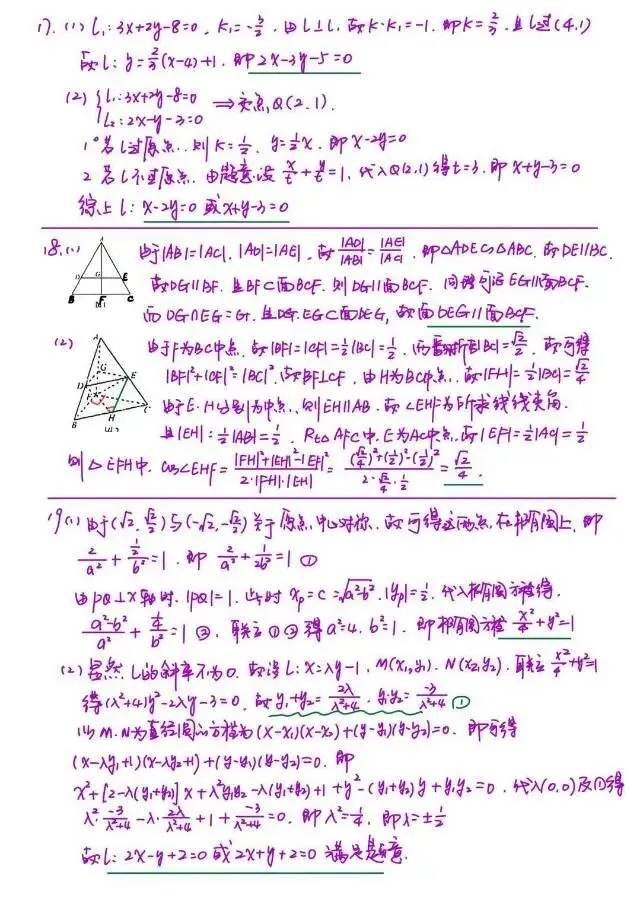 17. (1) l₁: 3x+2y-8=0, k₁=-3/2, 由l⊥l₁, 故k·k₁=-1, 即k=2/3, 且l过(4,1)
故l: y=2/3(x-4)+1, 即2x-3y-5=0
(2) {l₁: 3x+2y-8=0
l₂: 2x-y-3=0 ⟹ 交点Q(2,1).
1° 若l过原点, 则k=1/2, y=1/2x, 即x-2y=0
2 若l不过原点, 由题意设x/t+y/t=1, 代入Q(2,1)得t=3, 即x+y-3=0
综上l: x-2y=0 或 x+y-3=0
18.(1) 由于|AB|=|AC|, |AD|=|AE|, 故|AD|/|AB|=|AE|/|AC|, 即△ADE∽△ABC, 故DE∥BC,
A D G E B F C
故DG∥BF, 且BF⊂面BCF, 则DG∥面BCF, 同理可得EG∥面BCF.
而DG∩EG=G, 且DG,EG⊂面DEG, 故面DEG∥面BCF.
(2) 由于F为BC中点, 故|BF|=|CF|=1/2|BC|=1/2, 而翻折后|BC|=√2/2, 故可得
A G D E F B H C
|BF|²+|CF|²=|BC|², 故BF⊥CF, 由H为BC中点, 故|FH|=1/2|BC|=√2/4
由于E·H分别为中点, 则EH∥AB, 故∠EHF为所求线线夹角.
且|EH|=1/2|AB|=1/2, Rt△AFC中, E为AC中点, 故|EF|=1/2|AC|=1/2
则△EFH中, cos∠EHF=|FH|²+|EH|²-|EF|²/2·|FH|·|EH|=(√2/4)²+(1/2)²-(1/2)²/2·√2/4·1/2=√2/4.
19(1) 由于(√2,√2/2)与(-√2,-√2/2)关于原点中心对称, 故可得这两点在椭圆上, 即
2/a²+1/2/b²=1, 即2/a²+1/2b²=1 ①
由PQ⊥x轴时, |PQ|=1, 此时x_p=c=√a²-b², |y_p|=1/2, 代入椭圆方程得,
a²-b²/a²+1/4/b²=1 ②, 联立①②得a²=4, b²=1, 即椭圆方程x²/4+y²=1
(2) 显然l的斜率不为0, 故设l: x=λy-1, M(x₁,y₁), N(x₂,y₂), 联立x²/4+y²=1
得(λ²+4)y²-2λy-3=0, 故y₁+y₂=2λ/λ²+4, y₁y₂=-3/λ²+4 ①
以M·N为直径圆的方程为(x-x₁)(x-x₂)+(y-y₁)(y-y₂)=0, 即可得
(x-λy₁+1)(x-λy₂+1)+(y-y₁)(y-y₂)=0, 即
x²+[2-λ(y₁+y₂)]x+λ²y₁y₂-λ(y₁+y₂)+1+y²-(y₁+y₂)y+y₁y₂=0, 代入(0,0)及①得
λ²·-3/λ²+4-λ·2λ/λ²+4+1+-3/λ²+4=0, 即λ²=1/4, 即λ=±1/2
故l: 2x-y+2=0 或 2x+y+2=0 满足题意.